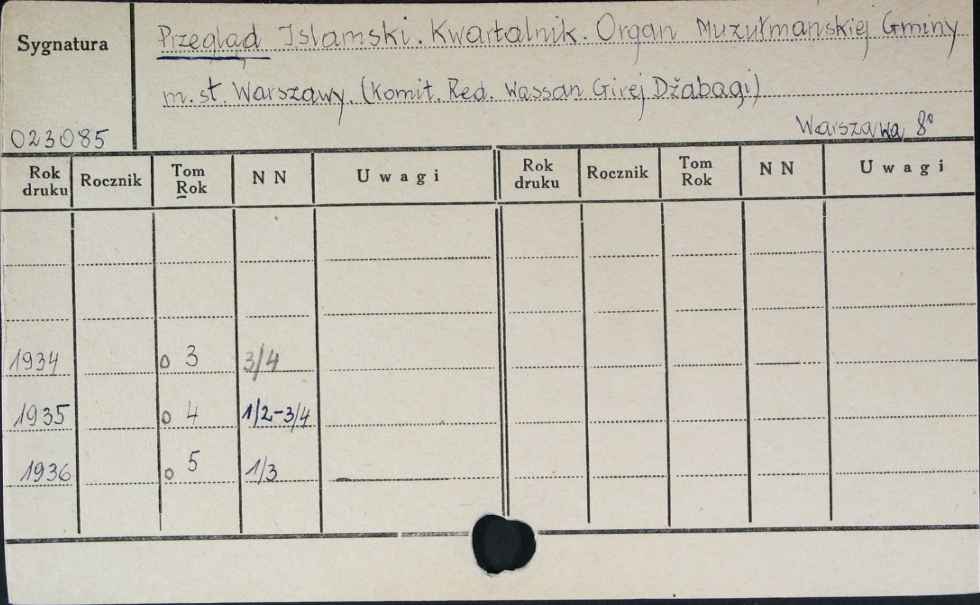 Sygnatura
Przegląd Islamski. Kwartalnik. Organ Muzułmańskiej Gminy
m. st. Warszawy. (Komit. Red. Wassan Girej Dżabagi)
023085
Warszawa 8°
Rok druku Rocznik Tom Rok N N Uwagi Rok druku Rocznik Tom Rok N N Uwagi
1934 o 3 3/4
1935 o 4 1/2-3/4
1936 o 5 1/3